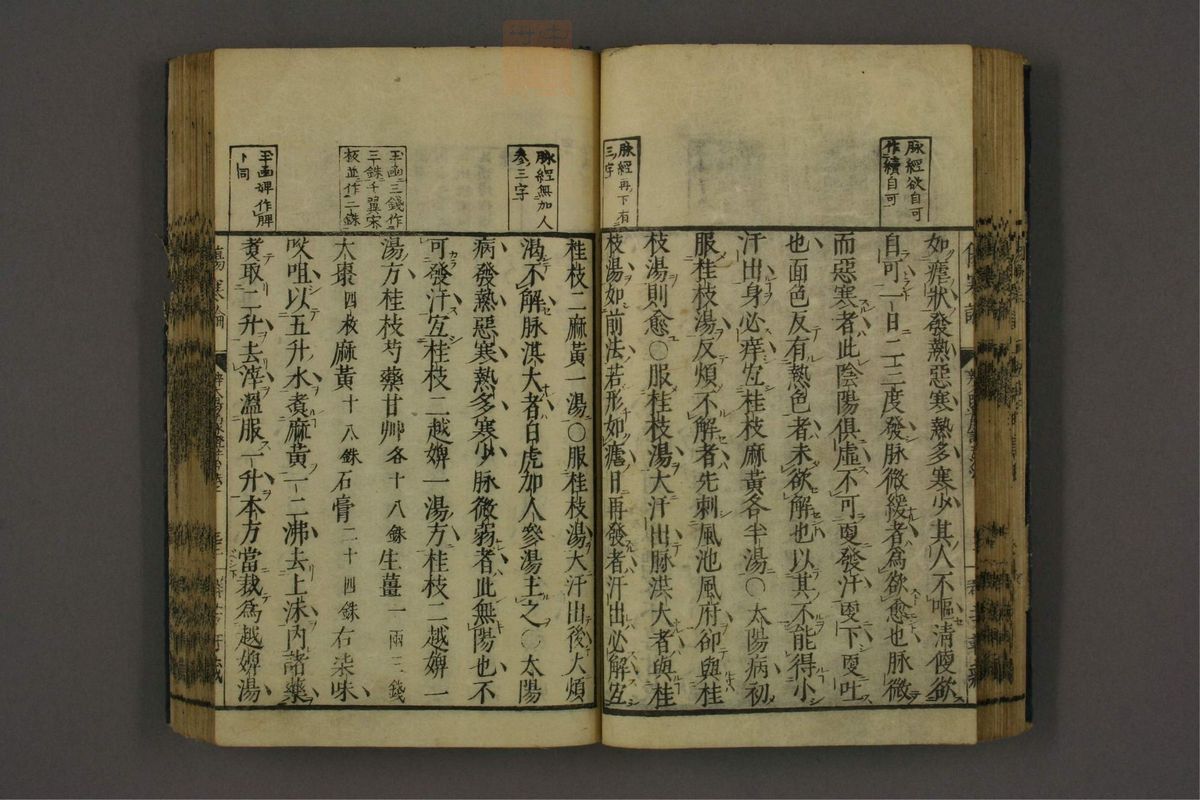 脉經欲自可
作續自可
如瘧狀發熱惡寒熱多寒少其人不嘔清便欲
自可一日二三度發脉微緩者為欲愈也脉微
而惡寒者此陰陽俱虛不可更發汗更下更吐
也面色反有熱色者未欲解也以其不能得小
汗出身必痒宜桂枝麻黃各半湯○太陽病初
服桂枝湯反煩不解者先刺風池風府卻與桂
枝湯則愈○服桂枝湯大汗出脉洪大者與桂
脉經再下有
三字
枝湯如前法若形如瘧日再發者汗出必解宜
桂枝二麻黃一湯○服桂枝湯大汗出後大煩
脉經無加人
參三字
渴不解脉洪大者白虎加人參湯主之○太陽
病發熱惡寒熱多寒少脉微弱者此無陽也不
可發汗宜桂枝二越婢一湯方桂枝二越婢一
玉函三錢作
三銖千翼宋
板並作二銖
湯方桂枝芍藥甘艸各十八銖生薑一兩三錢
大棗四枚麻黃十八銖石膏二十四銖右柒味
㕮咀以五升水煮麻黃一二沸去上沫內諸藥
玉函婢作脾
下同
煮取二升去滓溫服一升本方當裁為越婢湯
傷寒論